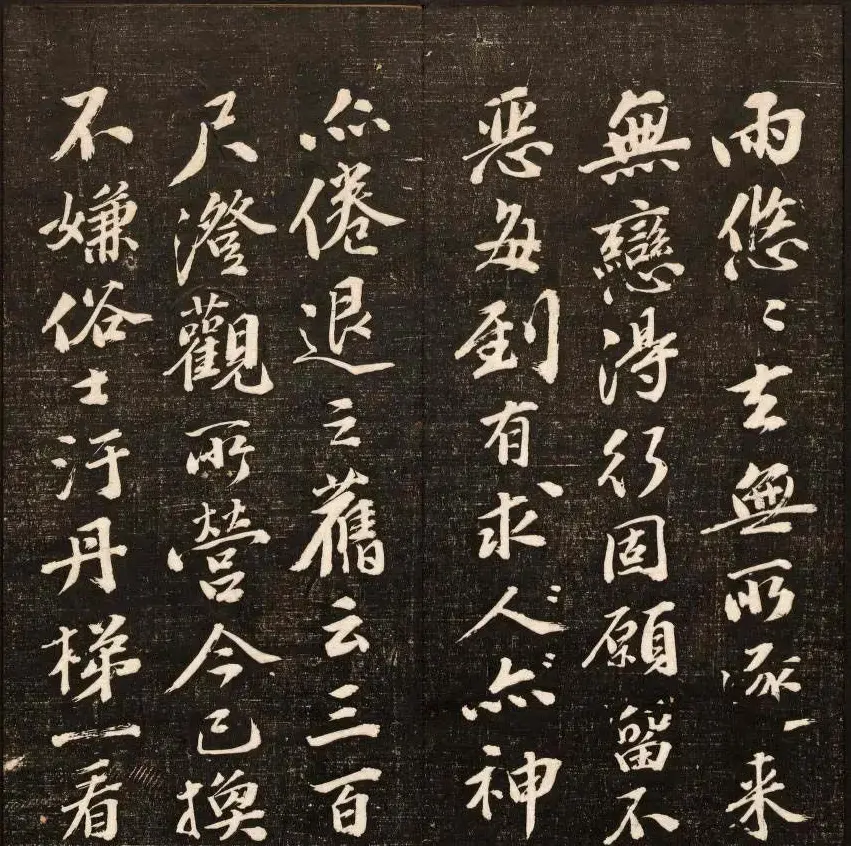 兩悠〻去無所逐来
無戀得行固願留不
惡每到有求人亦神
亦倦退之舊云三百
尺澄觀所營今已換
不嫌俗士汙丹梯一看